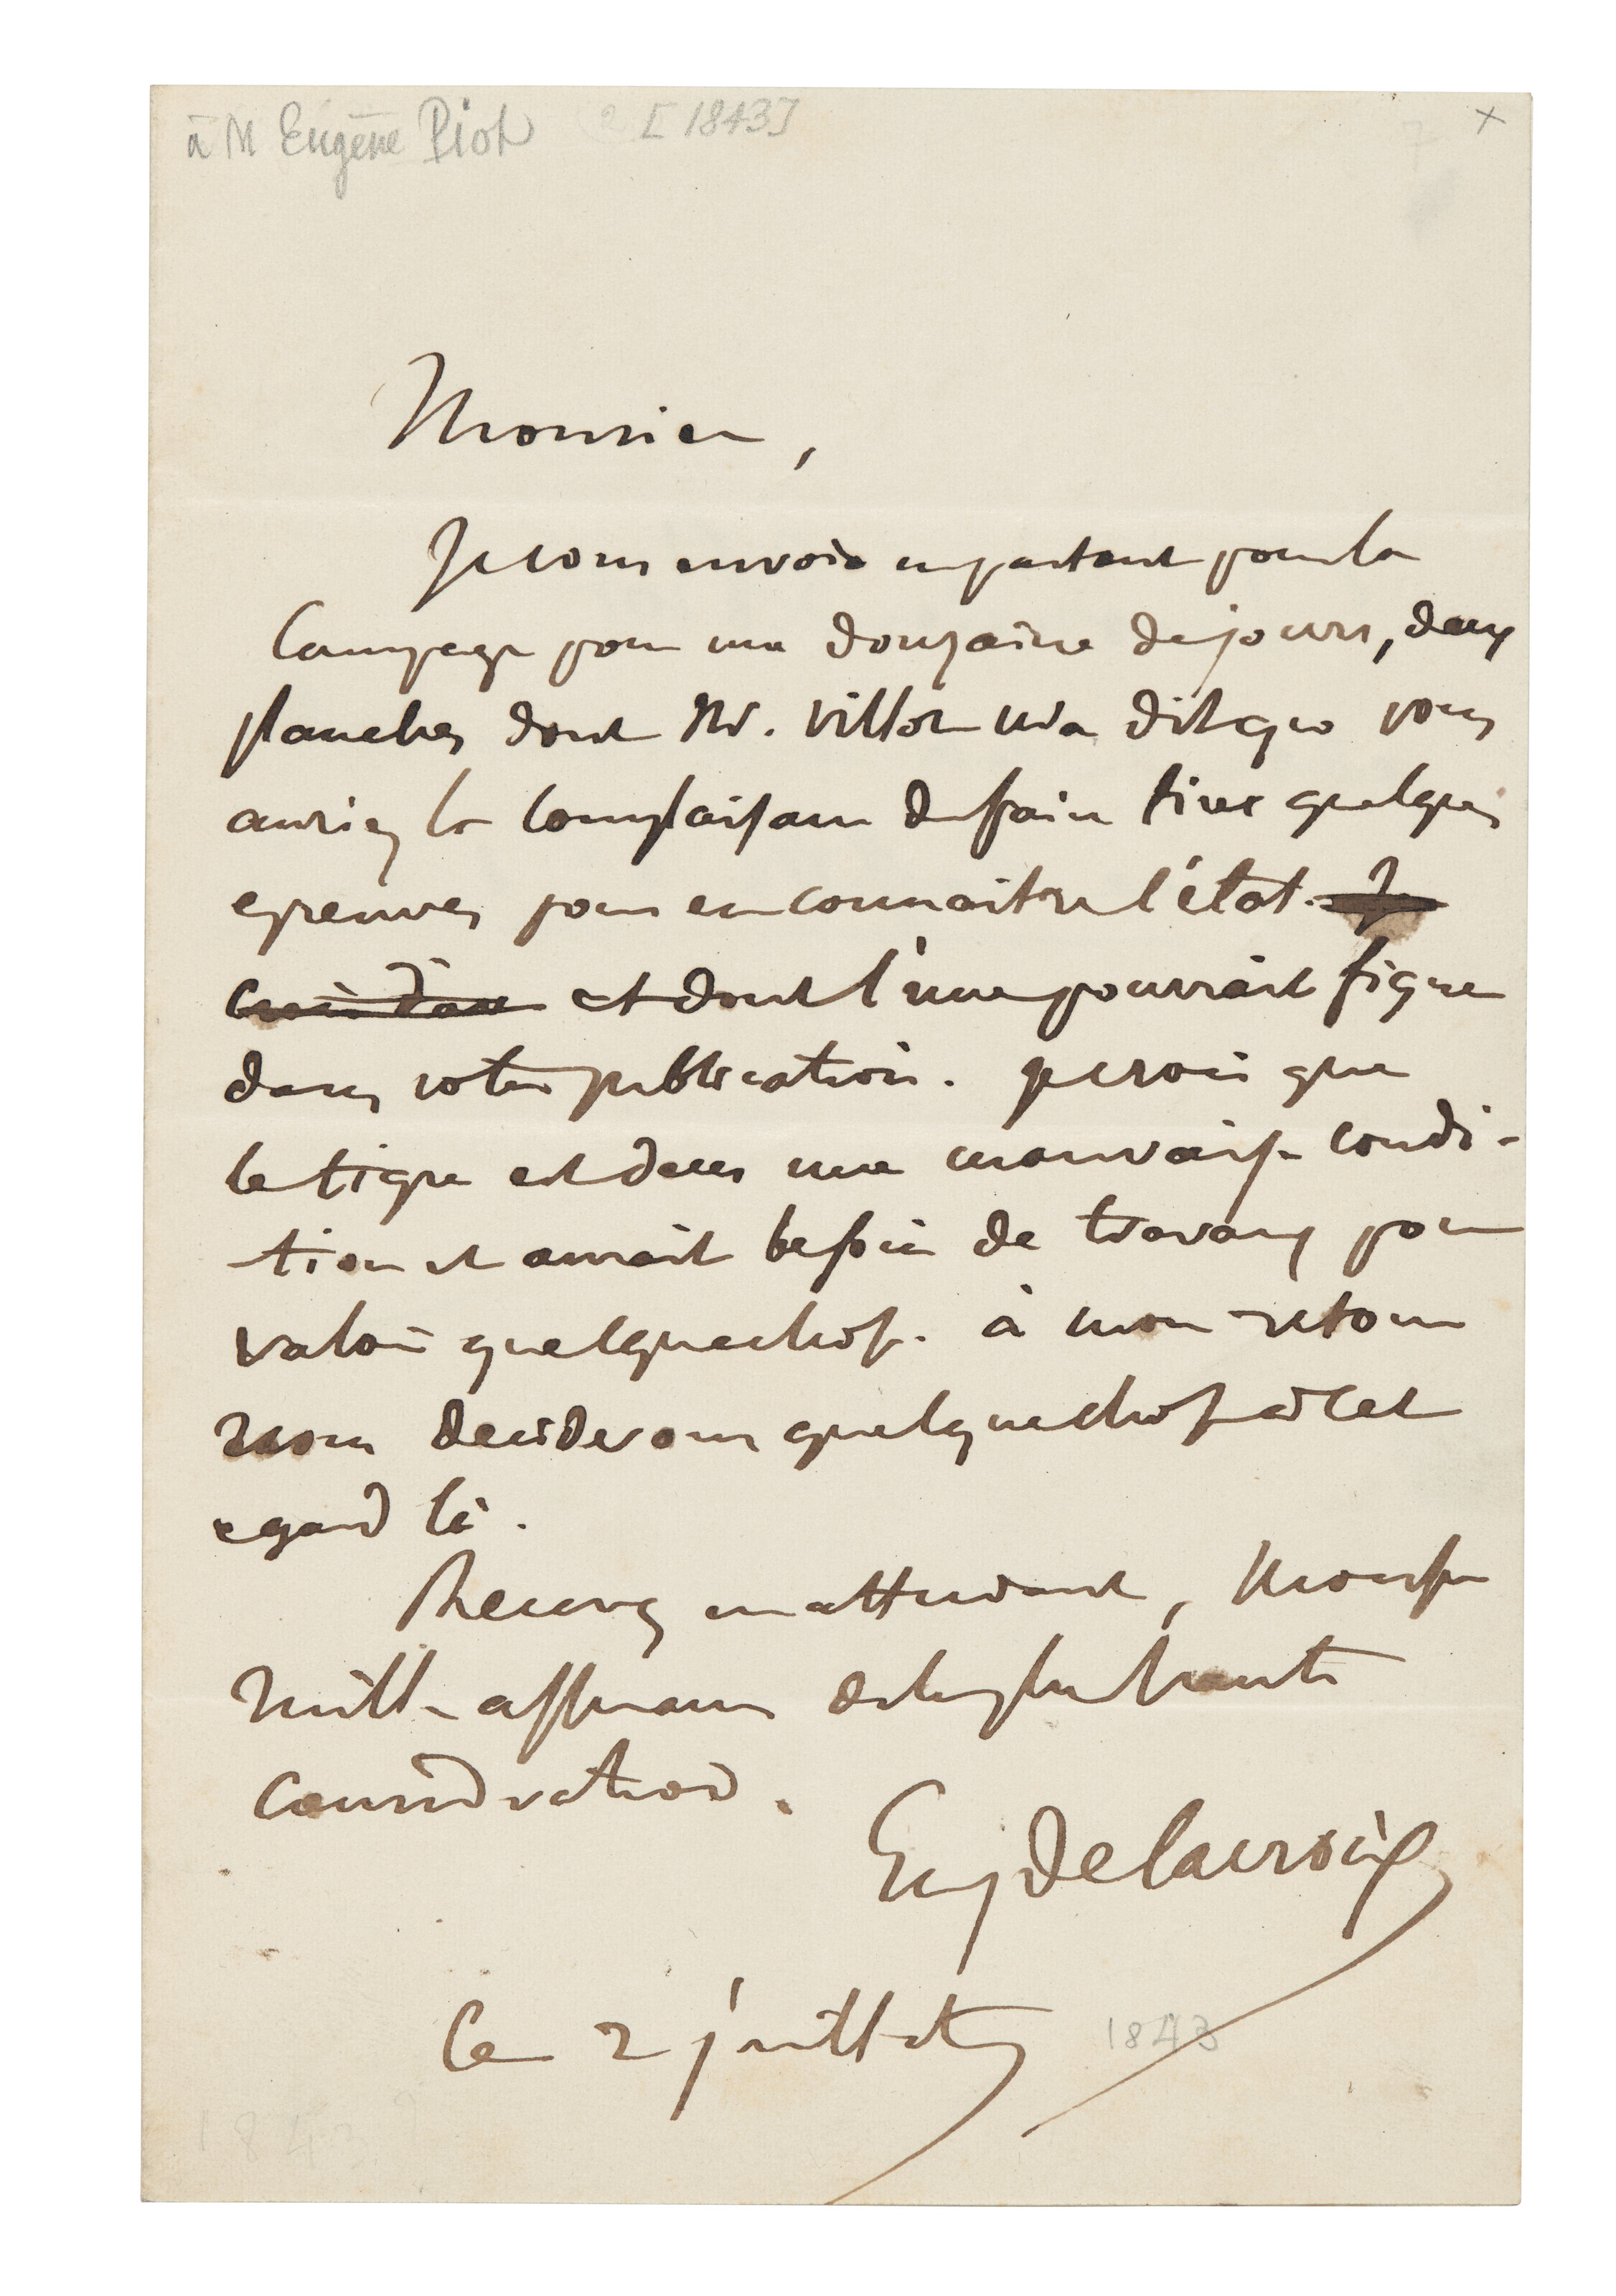 à M Eugène Piot [1843]
x
Monsieur,
Je vous envoie en partant pour la
Campagne pour une douzaine de jours, deux
planches dont Mr. Villot m'a dit que vous
auriez la complaisance de faire tirer quelques
epreuves pour en connaitre l'état. Je
crois dans et dont l'une pourrait figurer
dans votre publication. je crois que
le tigre est dans une mauvaise condi-
tion et aurait besoin de travaux pour
valoir quelque chose. à mon retour
nous deciderons quelque chose à cet
egard là.
Recevez en attendant, Monsieur
mille assurances de la plus haute
consideration.
Eug Delacroix
Ce 2 juillet 1843
1843?